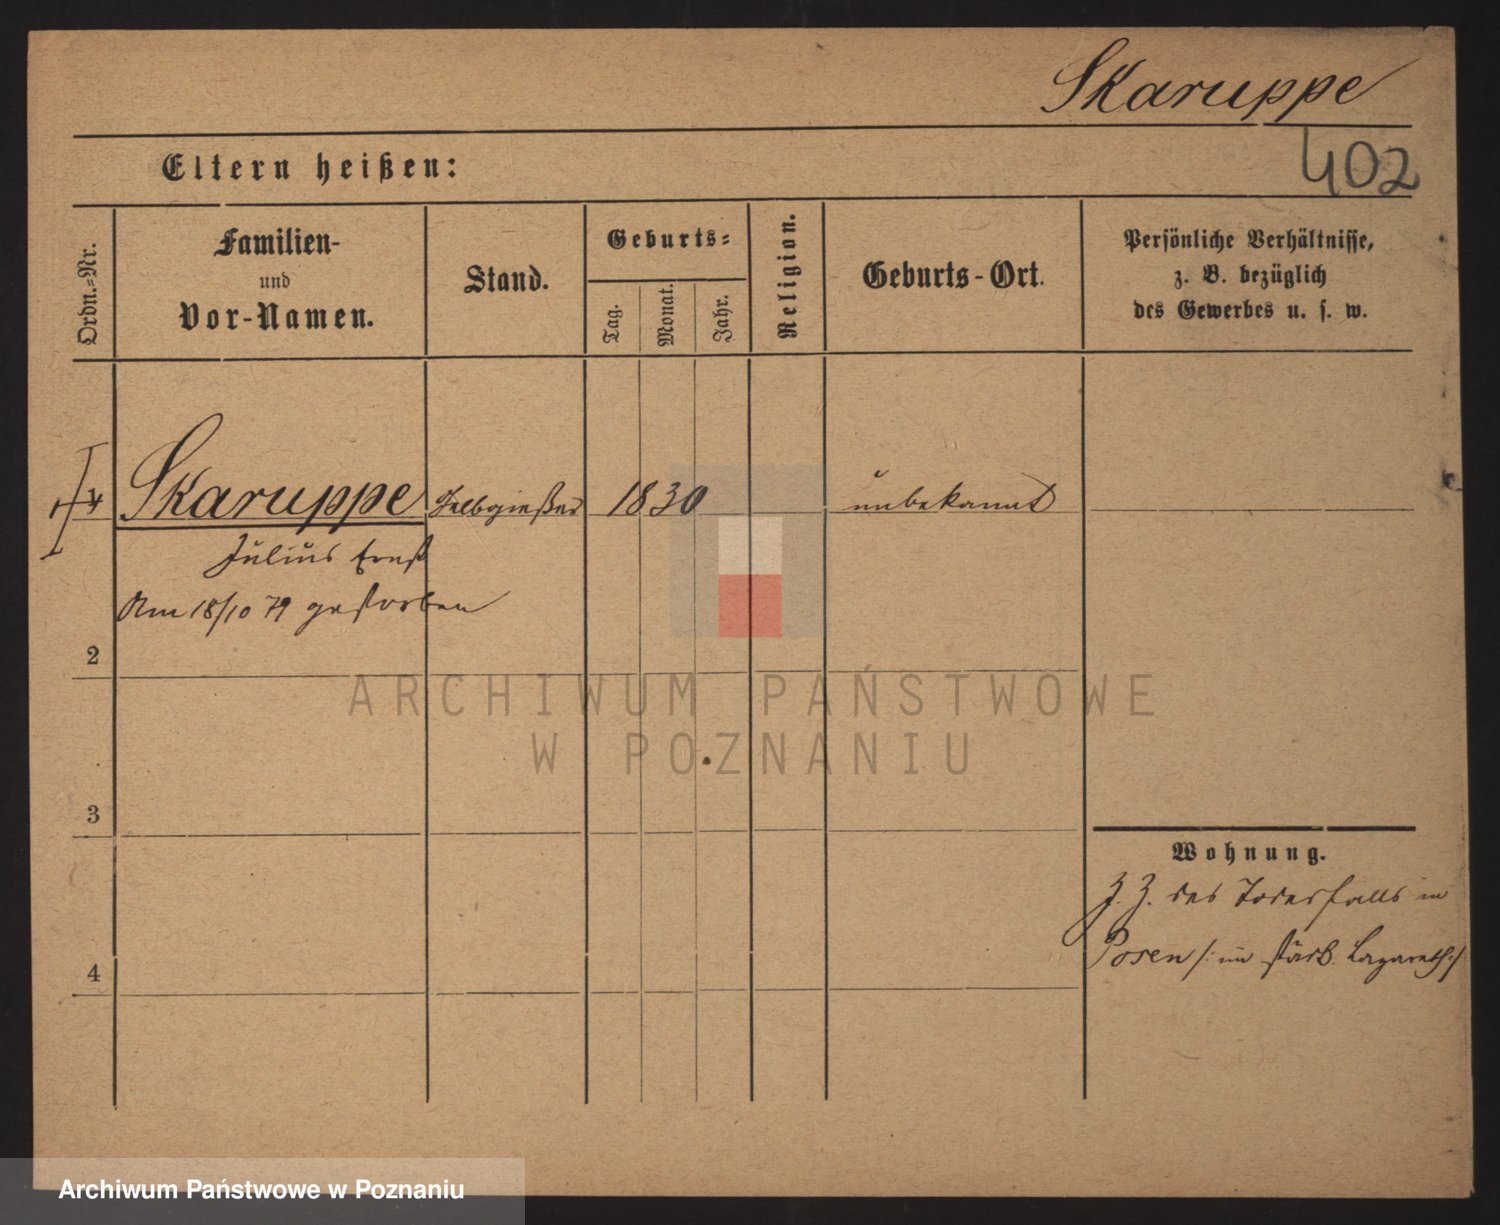 Skaruppe
402
Eltern heißen:
Ordn.-Nr.
Familien-
und
Vor-Namen.
Stand.
Geburts-
Tag.
Monat.
Jahr.
Religion.
Geburts-Ort.
Persönliche Verhältnisse,
z. B. bezüglich
des Gewerbes u. s. w.
Skaruppe Gelbgießer 1830 unbekannt
Julius Ernst
Am 18/10 79 gestorben
2
ARCHIWUM PAŃSTWOWE
W POZNANIU
3
Wohnung.
Z. Z. des Todesfalls in
Posen /: im städt. Lazareth :/
4
Archiwum Państwowe w Poznaniu